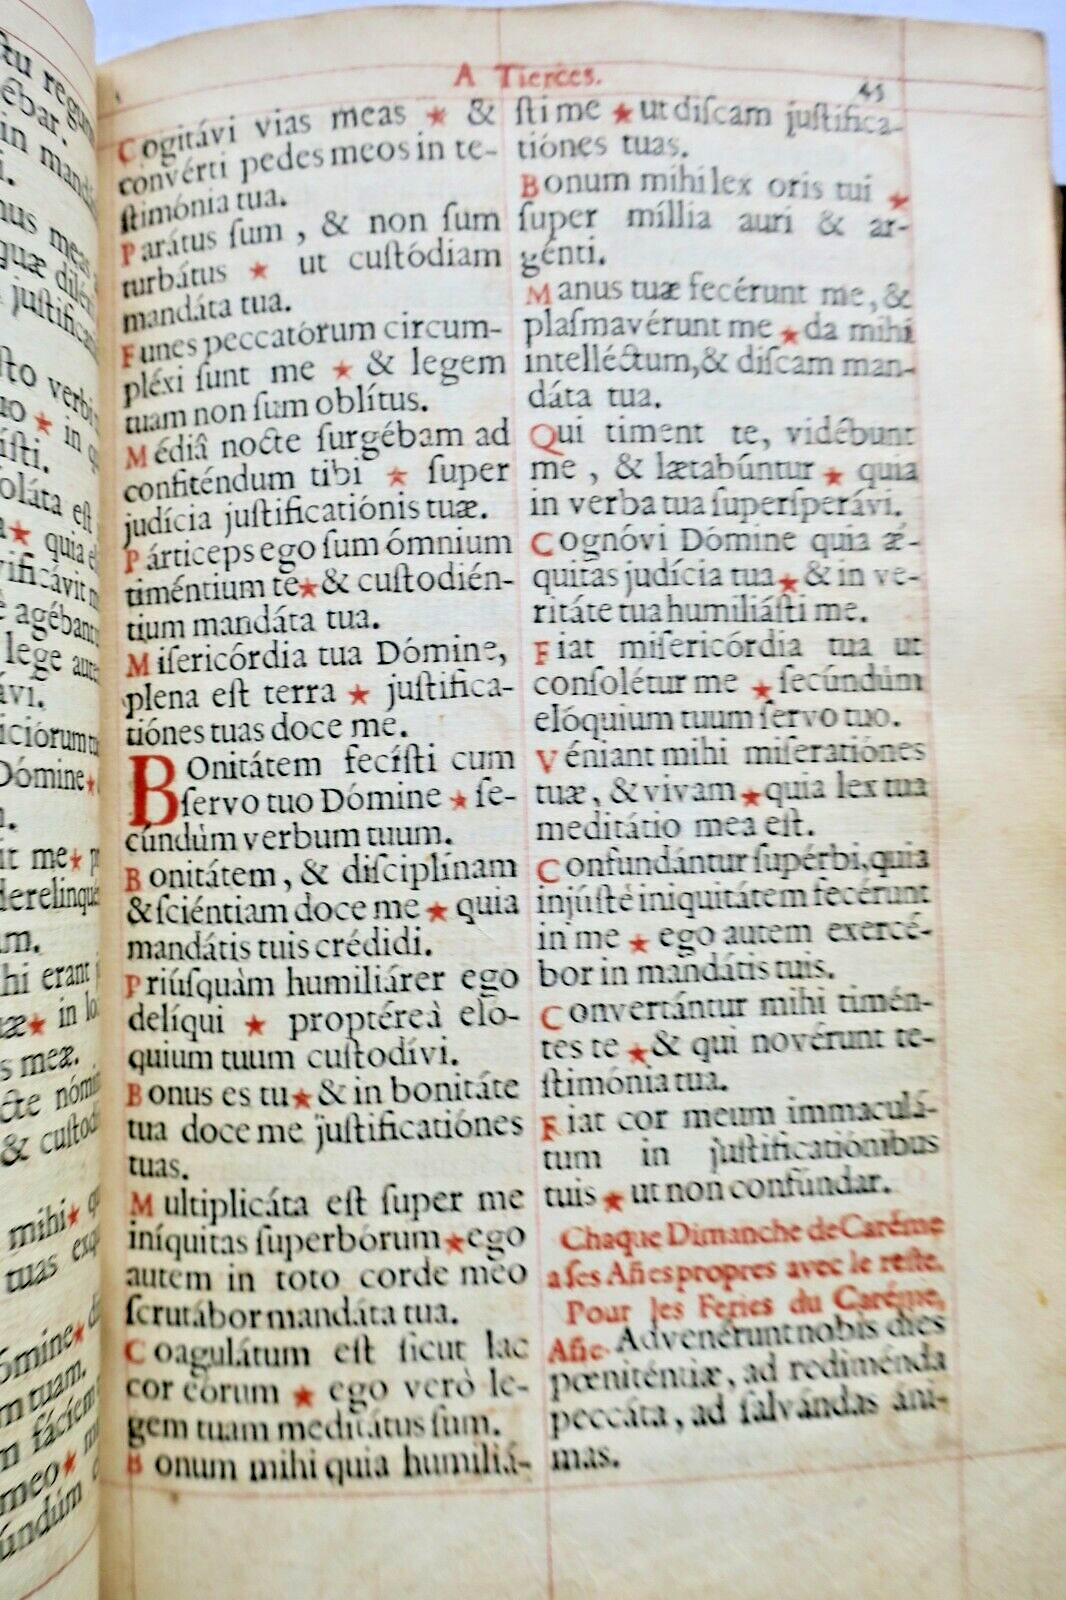 A Tierces. 45
Cogitávi vias meas * &
convérti pedes meos in te-
ſtimónia tua.
Parátus ſum, & non ſum
turbátus * ut cuſtódiam
mandáta tua.
Funes peccatórum circum-
pléxi ſunt me * & legem
tuam non ſum oblítus.
Médiâ nocte ſurgébam ad
confiténdum tibi * ſuper
judícia juſtificatiónis tuæ.
Párticeps ego ſum ómnium
timéntium te * & cuſtodién-
tium mandáta tua.
Miſericórdia tua Dómine,
plena eſt terra * juſtifica-
tiónes tuas doce me.
BOnitátem fecíſti cum
ſervo tuo Dómine * ſe-
cúndùm verbum tuum.
Bonitátem, & diſciplinam
& ſciéntiam doce me * quia
mandátis tuis crédidi.
Priúſquàm humiliárer ego
delíqui * proptéreà eló-
quium tuum cuſtodívi.
Bonus es tu * & in bonitáte
tua doce me juſtificatiónes
tuas.
Multiplicáta eſt ſuper me
iníquitas ſuperbórum * ego
autem in toto corde meo
ſcrutábor mandáta tua.
Coagulátum eſt ſicut lac
cor eórum * ego verò le-
gem tuam meditátus ſum.
Bonum mihi quia humiliá-
ſti me * ut diſcam juſtifica-
tiónes tuas.
Bonum mihi lex oris tui *
ſuper míllia auri & ar-
génti.
Manus tuæ fecérunt me, &
plaſmavérunt me * da mihi
intelléctum, & diſcam man-
dáta tua.
Qui timent te, vidébunt
me, & lætabúntur * quia
in verba tua ſuperſperávi.
Cognóvi Dómine quia æ-
quitas judícia tua * & in ve-
ritáte tua humiliáſti me.
Fiat miſericórdia tua ut
conſolétur me * ſecúndùm
elóquium tuum ſervo tuo.
Véniant mihi miſeratiónes
tuæ, & vivam * quia lex tua
meditátio mea eſt.
Confundántur ſupérbi, quia
injúſtè iniquitátem fecérunt
in me * ego autem exercé-
bor in mandátis tuis.
Convertántur mihi timén-
tes te * & qui novérunt te-
ſtimónia tua.
Fiat cor meum immaculá-
tum in juſtificatiónibus
tuis * ut non confúndar.
Chaque Dimanche de Caréme
a ſes Añes propres avec le reſte.
Pour les Feries du Caréme,
Añe. Advenérunt nobis dies
pœniténtiæ, ad rediménda
peccáta, ad ſalvándas áni-
mas.